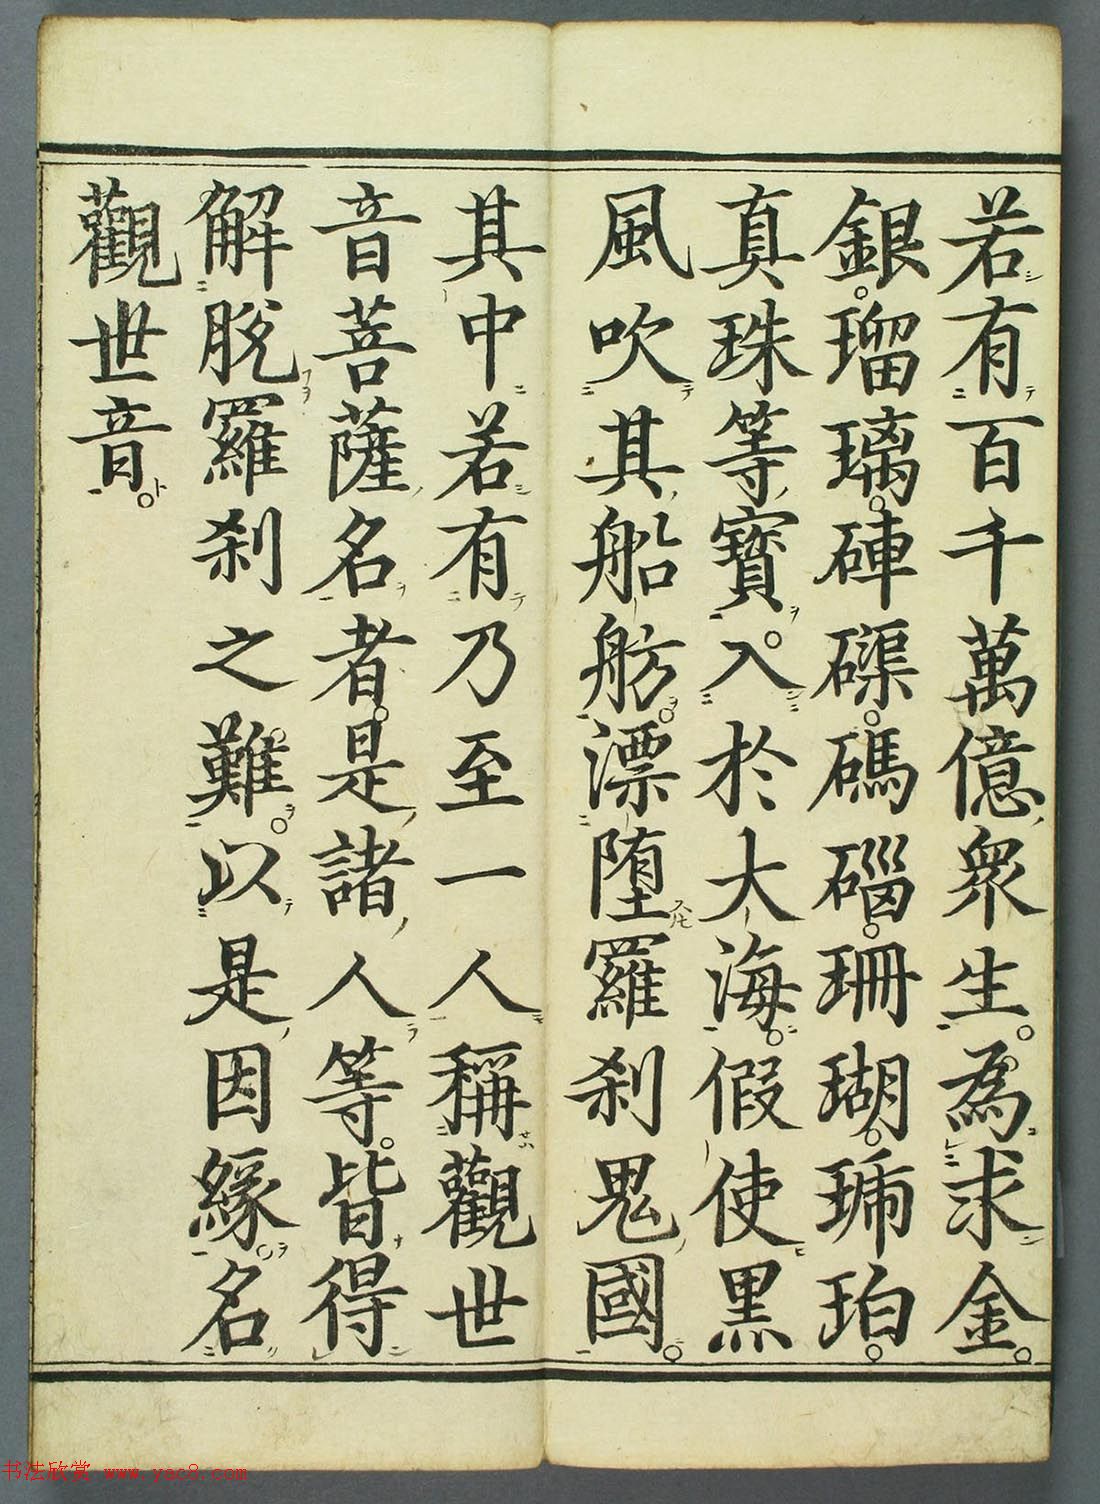 若有百千萬億衆生為求金
銀瑠璃硨磲碼碯珊瑚琥珀
真珠等寶入於大海假使黑
風吹其船舫漂堕羅刹鬼國
其中若有乃至一人稱觀世
音菩薩名者是諸人等皆得
解脫羅刹之難以是因緣名
觀世音
书法欣赏 www.yac8.com